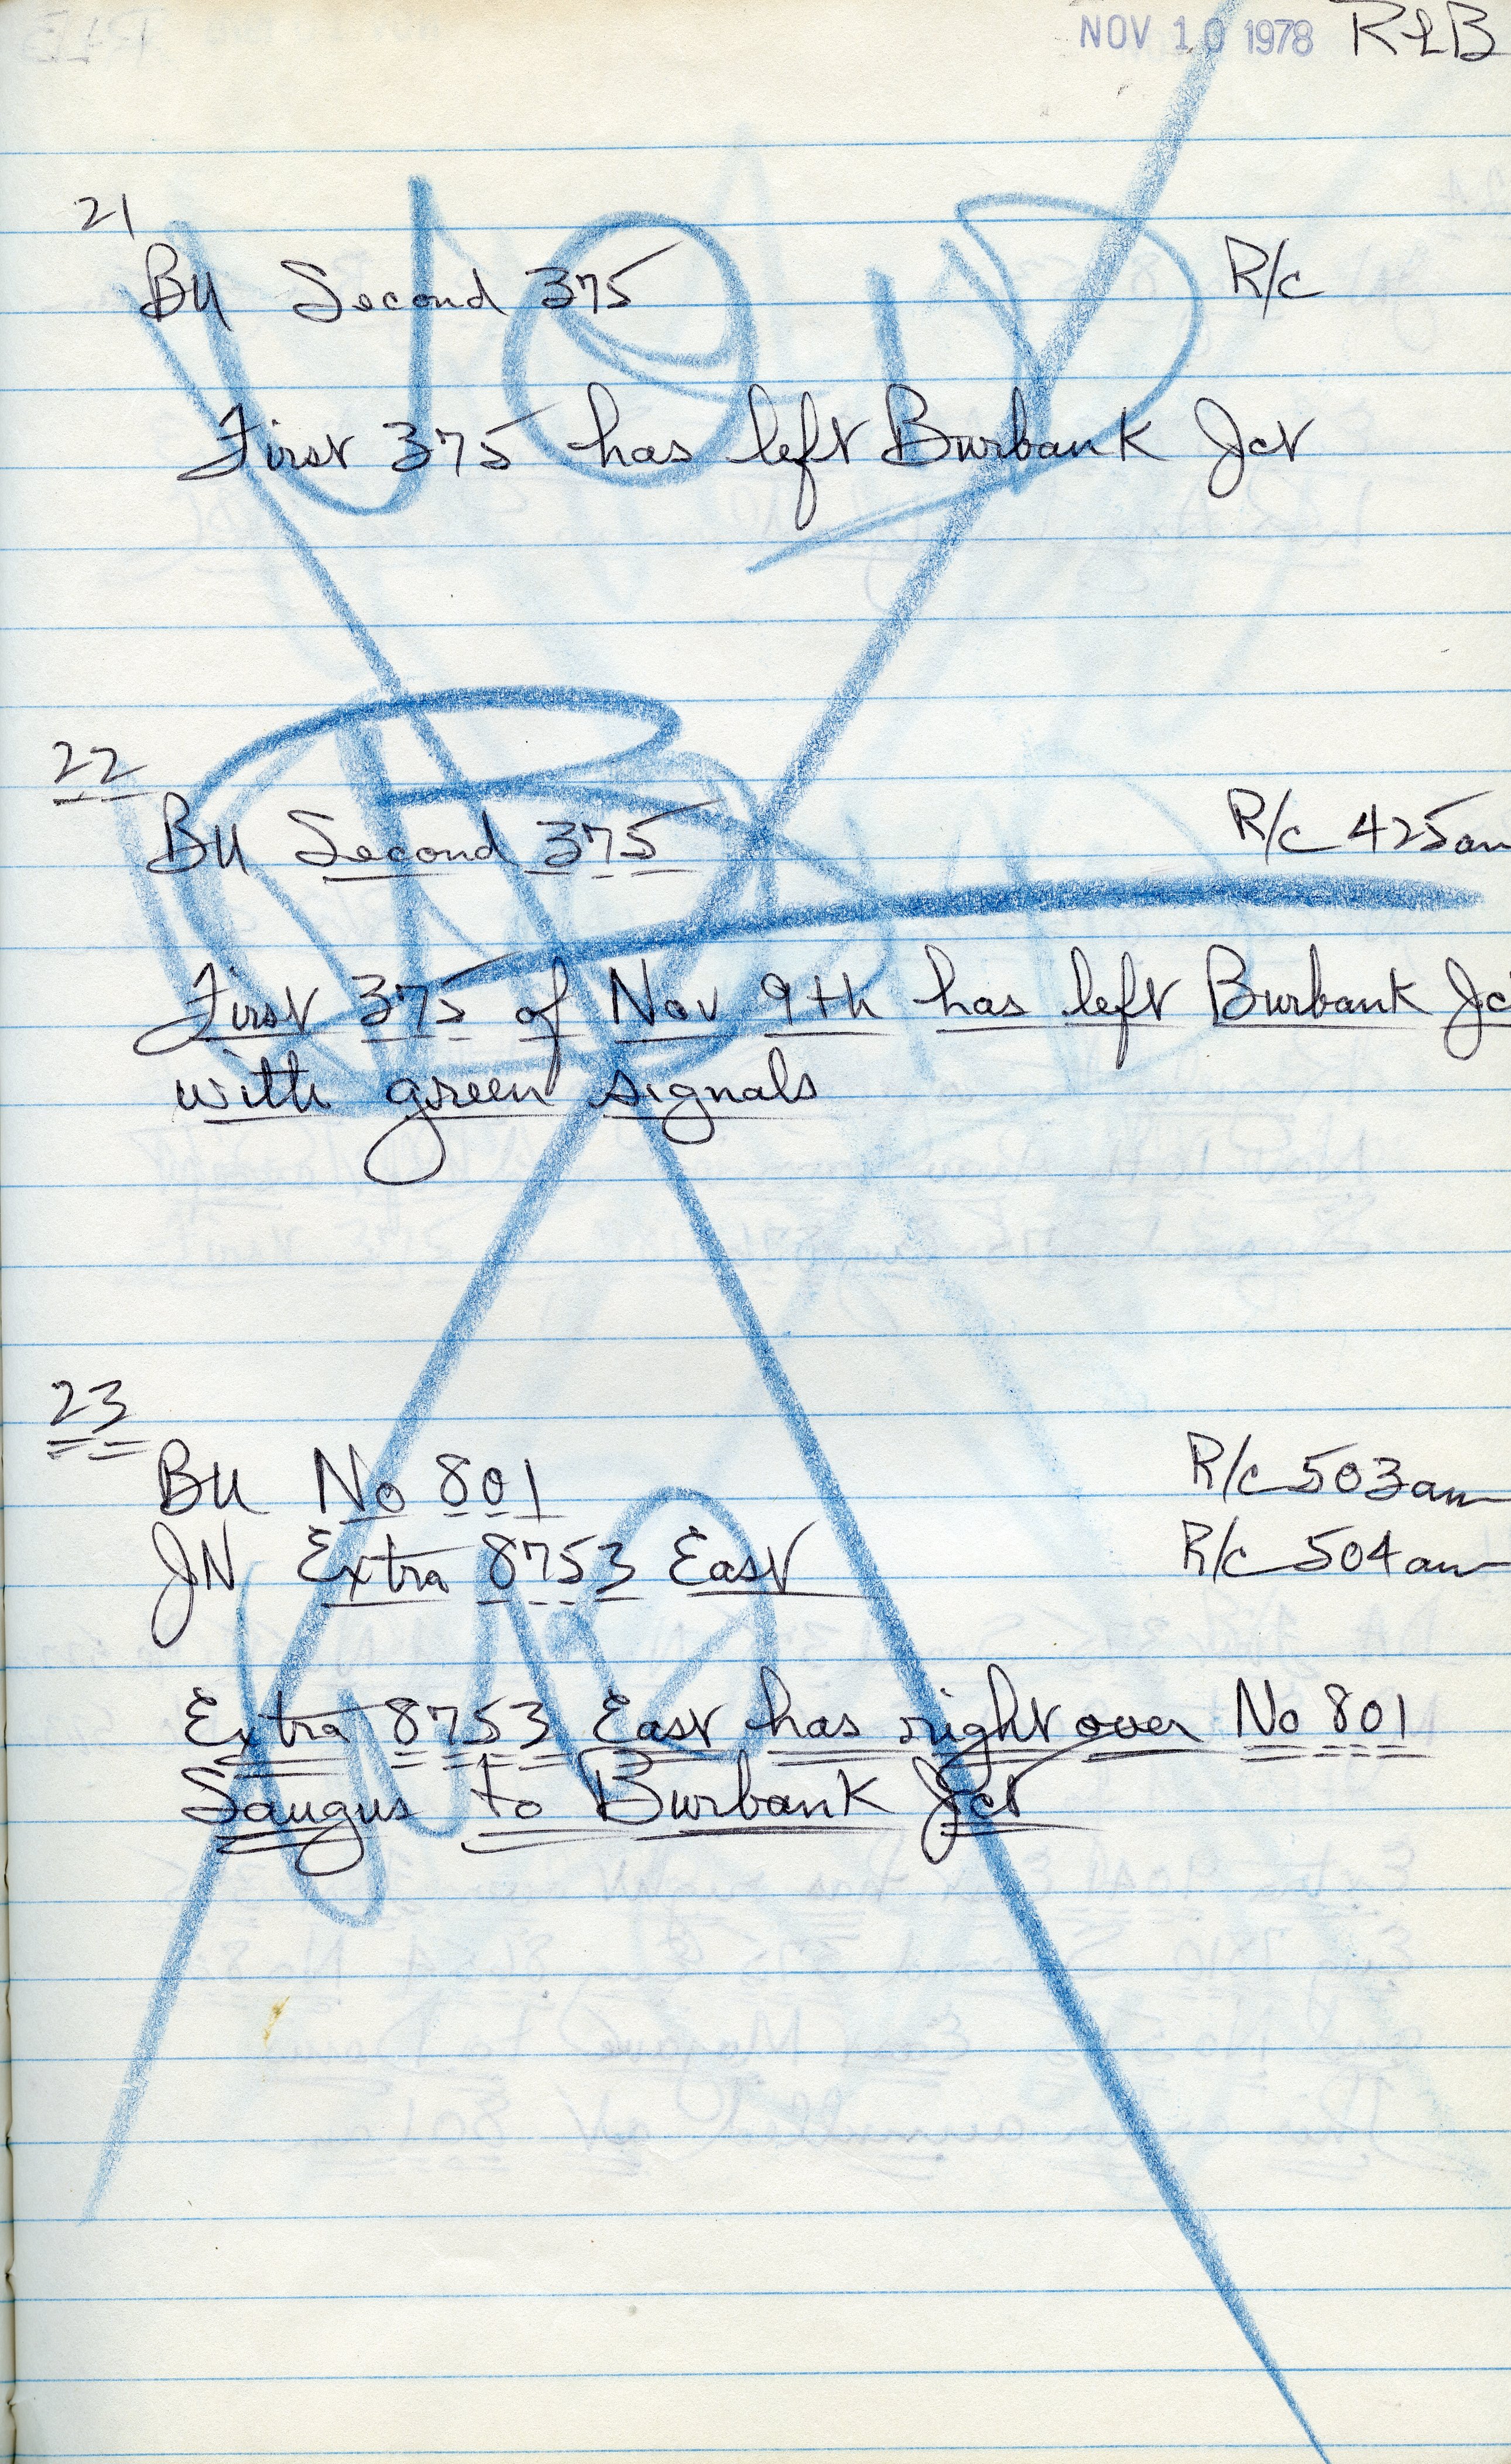 NOV 10 1978 RLB
21
BU Second 375 R/c
VOID
First 375 has left Burbank Jct
22
BU Second 375 R/c 425am
First 375 of Nov 9th has left Burbank Jc
with green signals
23
BU No 801 R/c 503am
JN Extra 8753 East R/c 504am
Extra 8753 East has right over No 801
Saugus to Burbank Jct